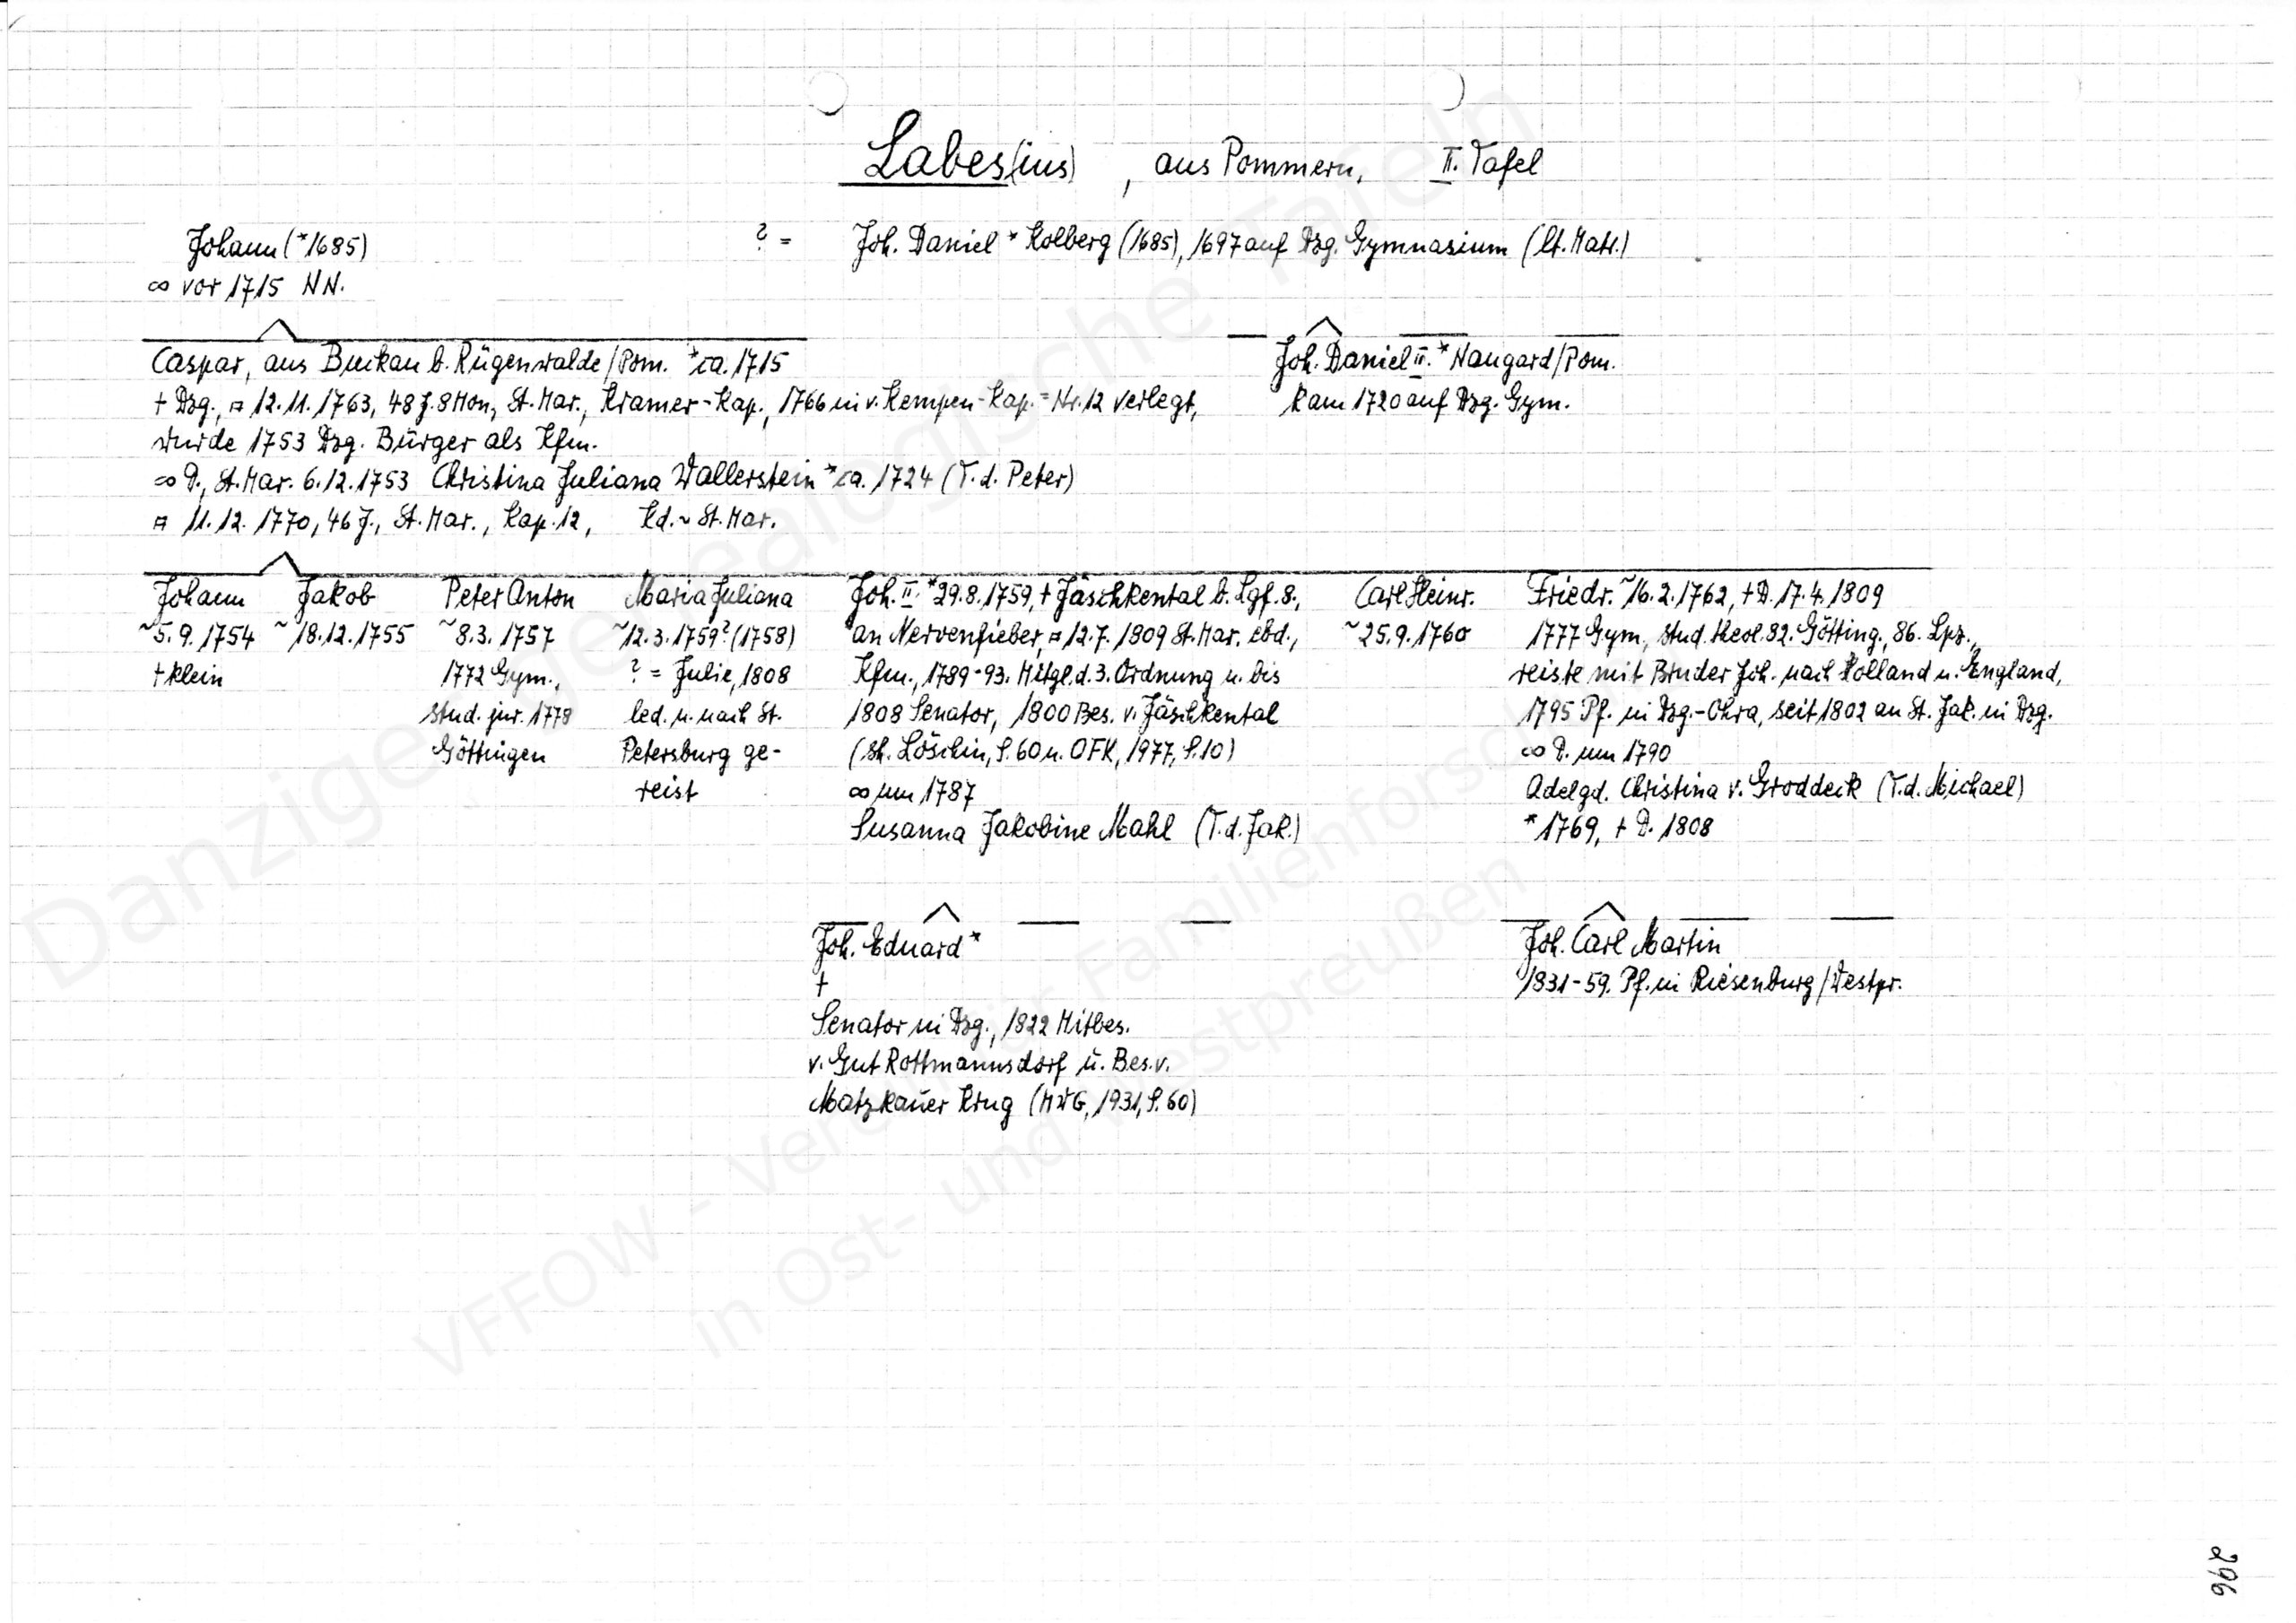 Labes(ius), aus Pommern, II. Tafel
Johann (*1685)
∞ vor 1715 NN.
? = Joh. Daniel * Kolberg (1685), 1697 auf Dzg. Gymnasium (lt. Matr.)
Caspar, aus Buckau b. Rügenwalde/Pom. *ca. 1715
† Dzg., ⚰ 12.11.1763, 48 J. 8 Mon, St. Mar., Kramer-Kap., 1766 in v. Kempen-Kap. = Nr. 12 verlegt,
wurde 1753 Dzg. Bürger als Kfm.
∞ D., St. Mar. 6.12.1753 Christina Juliana Wallerstein *ca. 1724 (T. d. Peter)
⚰ 11.12.1770, 46 J., St. Mar., Kap. 12, Kd. ~ St. Mar.
Joh. Daniel II. * Naugard/Pom.
kam 1720 auf Dzg. Gym.
Johann
~5.9.1754
† klein
Jakob
~18.12.1755
Peter Anton
~8.3.1757
1772 Gym.,
stud. jur. 1778
Göttingen
Maria Juliana
~12.3.1759? (1758)
? = Julie, 1808
led. u. nach St.
Petersburg ge-
reist
Joh. II. *29.8.1759, † Jäschkental b. Lgf. 8.,
an Nervenfieber, ⚰ 12.7.1809 St. Mar. ebd.,
Kfm., 1789-93. Mitgl. d. 3. Ordnung u. bis
1808 Senator, 1800 Bes. v. Jäschkental
(sh. Löschin, S. 60 u. OFK, 1977, S. 10)
∞ um 1787
Susanna Jakobine Mahl (T. d. Jak.)
Carl Heinr.
~25.9.1760
Friedr. ~16.2.1762, † D. 17.4.1809
1777 Gym, stud. theol. 82. Götting., 86. Lpz.,
reiste mit Bruder Joh. nach Holland u. England,
1795 Pf. in Dzg.-Ohra, seit 1802 an St. Jak. in Dzg.
∞ D. um 1790
Adelgd. Christina v. Groddeck (T. d. Michael)
*1769, † D. 1808
Joh. Eduard *
†
Senator in Dzg., 1822 Mitbes.
v. Gut Rottmannsdorf u. Bes. v.
Matzkauer Krug (MWG, 1931, S. 60)
Joh. Carl Martin
1831-59. Pf. in Riesenburg/Westpr.
296
Danziger genealogische Tafeln
VFFOW - Verein für Familienforschung
in Ost- und Westpreußen